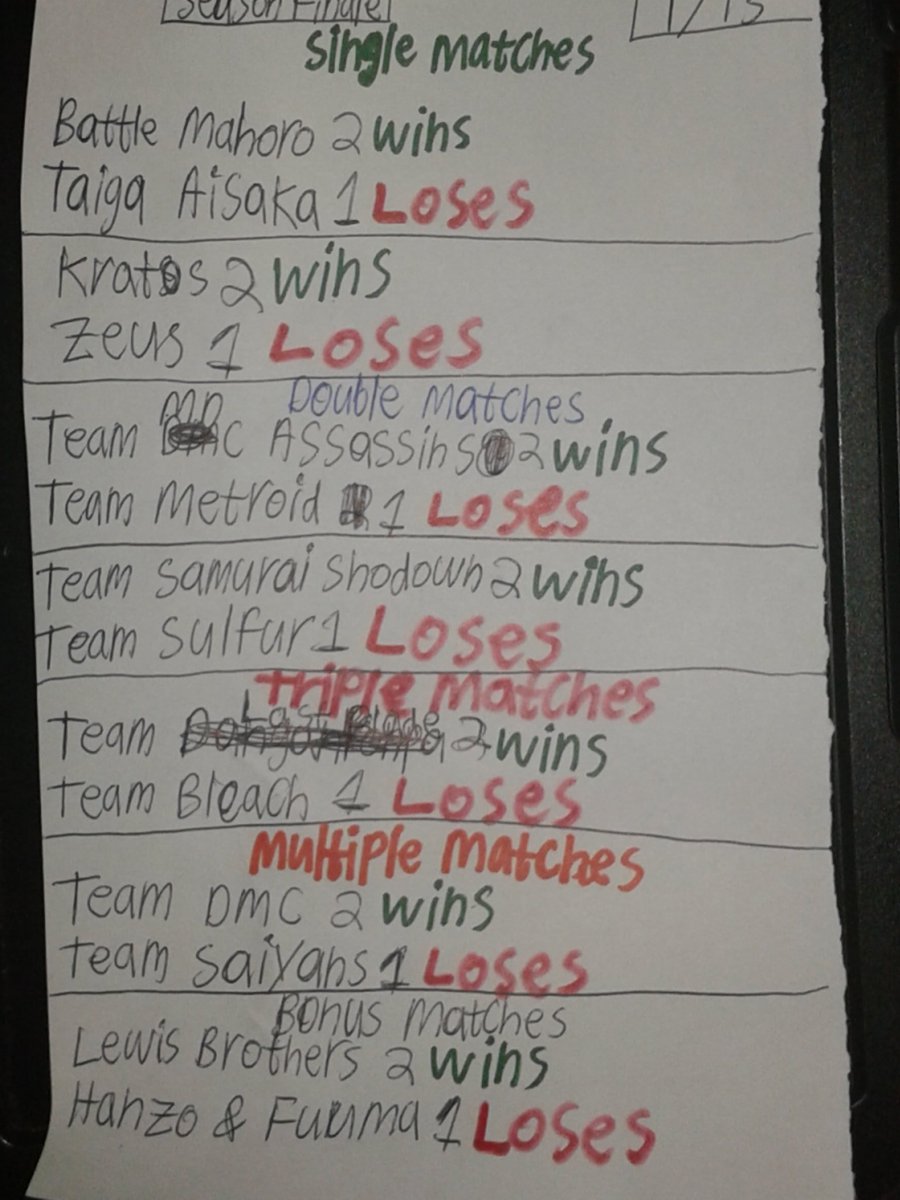 Season Finale
1/15
Single Matches
Battle Mahoro 2 wins
Taiga Aisaka 1 Loses
Kratos 2 wins
Zeus 1 Loses
Double Matches
Team MPC Assassins 2 wins
Team Metroid 1 Loses
Team Samurai Shodown 2 wins
Team Sulfur 1 Loses
Triple Matches
Team Last Blade 2 wins
Team Bleach 1 Loses
Multiple Matches
Team DMC 2 wins
Team Saiyans 1 Loses
Bonus Matches
Lewis Brothers 2 wins
Hanzo & Fuuma 1 Loses